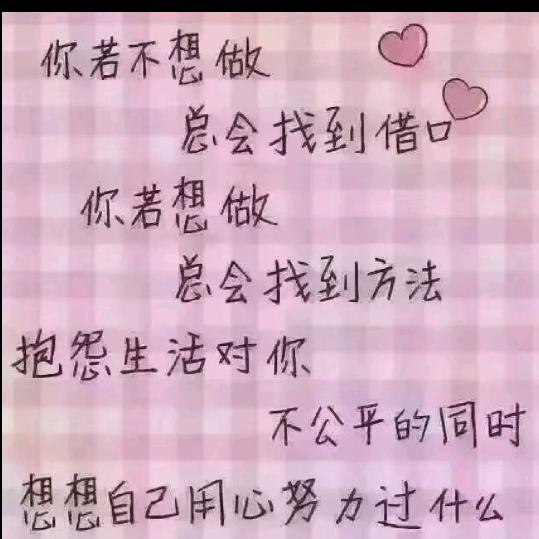 你若不想做
总会找到借口
你若想做
总会找到方法
抱怨生活对你
不公平的同时
想想自己用心努力过什么